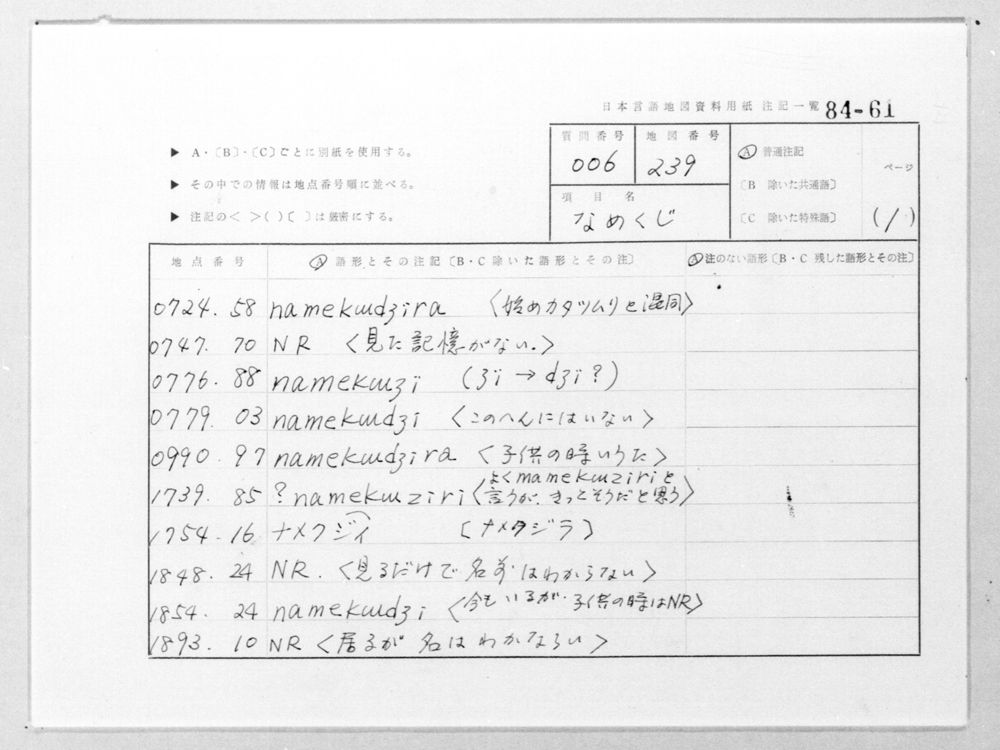 日本言語地図資料用紙 注記一覧 84-61
▶ A・〔B〕・〔C〕ごとに別紙を使用する。
▶ その中での情報は地点番号順に並べる。
▶ 注記の< >( )〔 〕は厳密にする。
質問番号 地図番号
006 239
項目名
なめくじ
Ⓐ 普通注記
〔B 除いた共通語〕
〔C 除いた特殊語〕
ページ
(1)
地点番号 Ⓐ 語形とその注記〔B・C除いた語形とその注〕 Ⓐ 注のない語形〔B・C 残した語形とその注〕
0724. 58 namekɯdʒira 〈始めカタツムリと混同〉
0747. 70 NR 〈見た記憶がない。〉
0776. 88 namekɯʒi (ʒi → dʒi?)
0779. 03 namekɯdʒi 〈このへんにはいない〉
0990. 97 namekɯdʒira 〈子供の時いうた〉
1739. 85 ? namekɯziri 〈よくmamekɯziriと
言うが、きっとそうだと思う〉
1754. 16 ナメクジイ 〔ナメタジラ〕
1848. 24 NR. 〈見るだけで名前はわからない〉
1854. 24 namekɯdʒi 〈今もいるが、子供の時はNR〉
1893. 10 NR 〈居るが名はわかならい〉